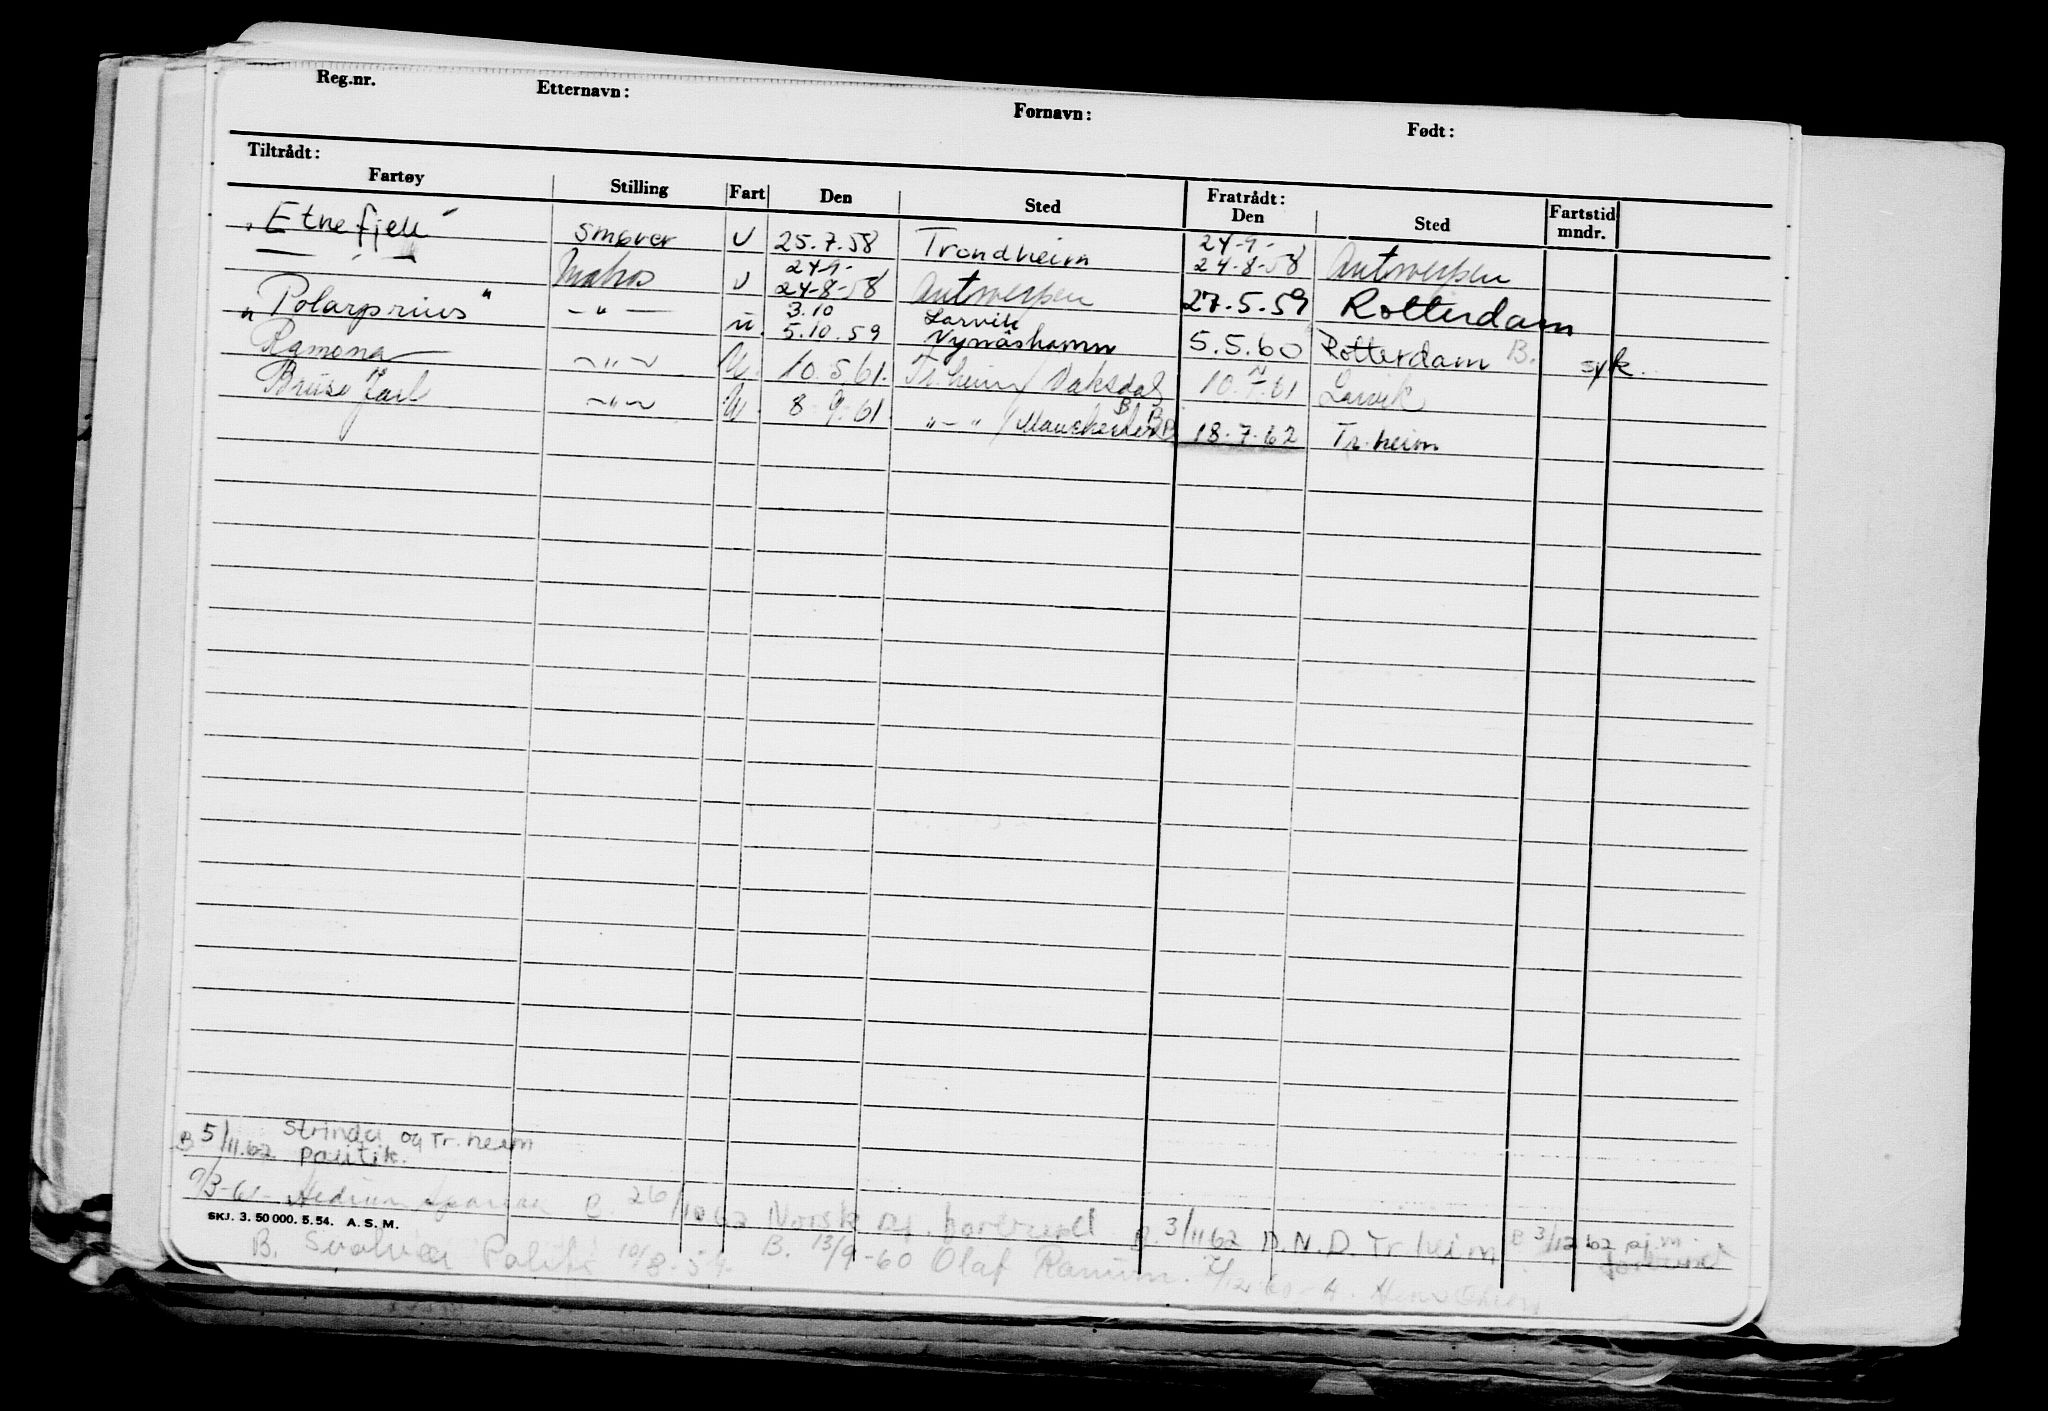 Reg.nr. Etternavn: Fornavn: Født:
Tiltrådt: Fratrådt:
Fartøy Stilling Fart Den Sted Den Sted Fartstid mndr.
24-9-
"Etnefjell" Smører U 25.7.58 Trondheim 24-8-58 Antwerpen
24-9-
— " — Matros U 24-8-58 Antwerpen 27.5.59 Rotterdam
3.10 Larvik
"Polarprins" — " — u. 5.10.59 Nynäshamn 5.5.60 Rotterdam B. syk.
Ramona — " — U. 10.5.61. Tr.heim / Vaksdal 10.7.61 Larvik
Bruse Jarl — " — U. 8.9.61 " — " / Manchester B B B 18.7.62 Tr.heim
B 5/11.62 Strinda og Tr.heim
politik.
B. 26/10 62 Norsk Sj. forbund B. 3/11 62 D.N.D. Tr.heim B 3/12 62 sj.m. forbund
SKJ. 3. 50 000. 5. 54. A. S. M.
B. Svolvær Politi 10/8-54. B. 13/9-60 Olaf